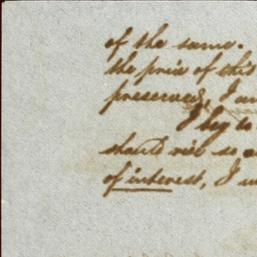 of the same.
the price of this
preserved, I am
I beg to
should
of interest, I